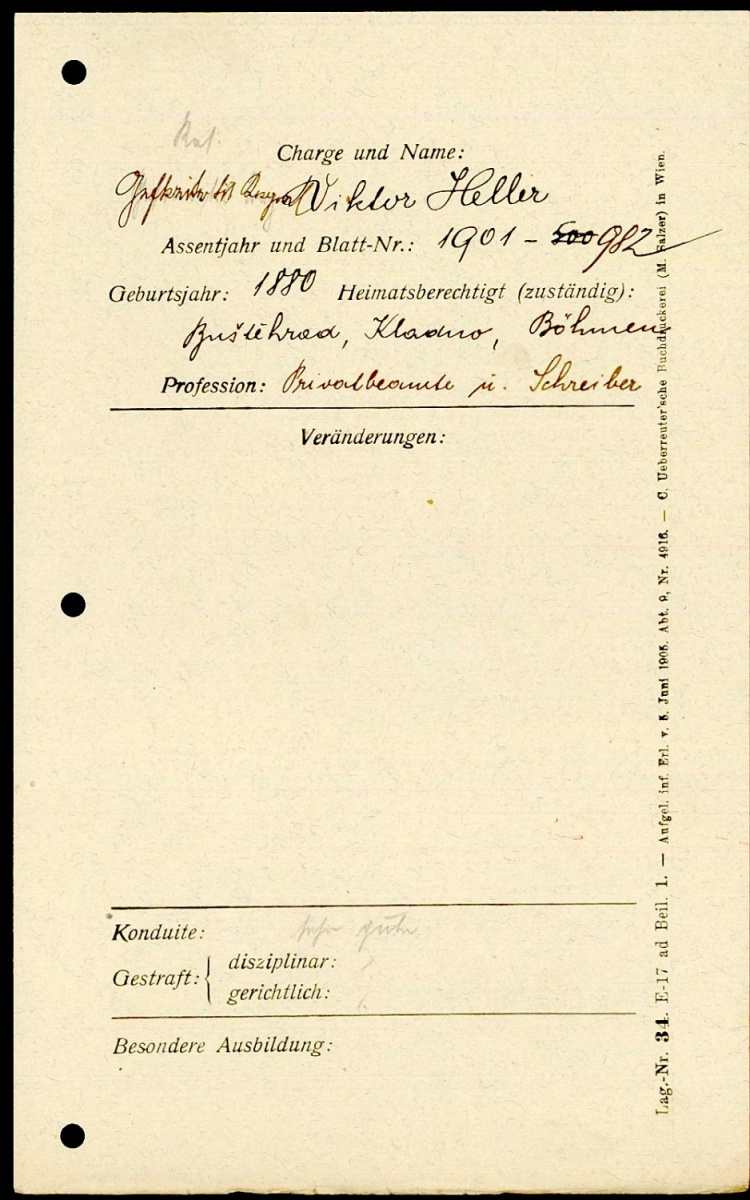 Charge und Name:
Viktor Heller
Assentjahr und Blatt-Nr.: 1901 - 500 982
Geburtsjahr: 1880 Heimatsberechtigt (zuständig):
Buštěhrad, Kladno, Böhmen
Profession: Privatbeamte u. Schreiber
Veränderungen:
Konduite: sehr gute
Gestraft: { disziplinar: /
gerichtlich: /
Besondere Ausbildung:
Lag.-Nr. 34. E-17 ad Beil. 1. — Aufgel. inf. Erl. v. 5. Juni 1905. Abt. 9, Nr. 4916. — C. Ueberreuter'sche Buchdruckerei (M. Salzer) in Wien.